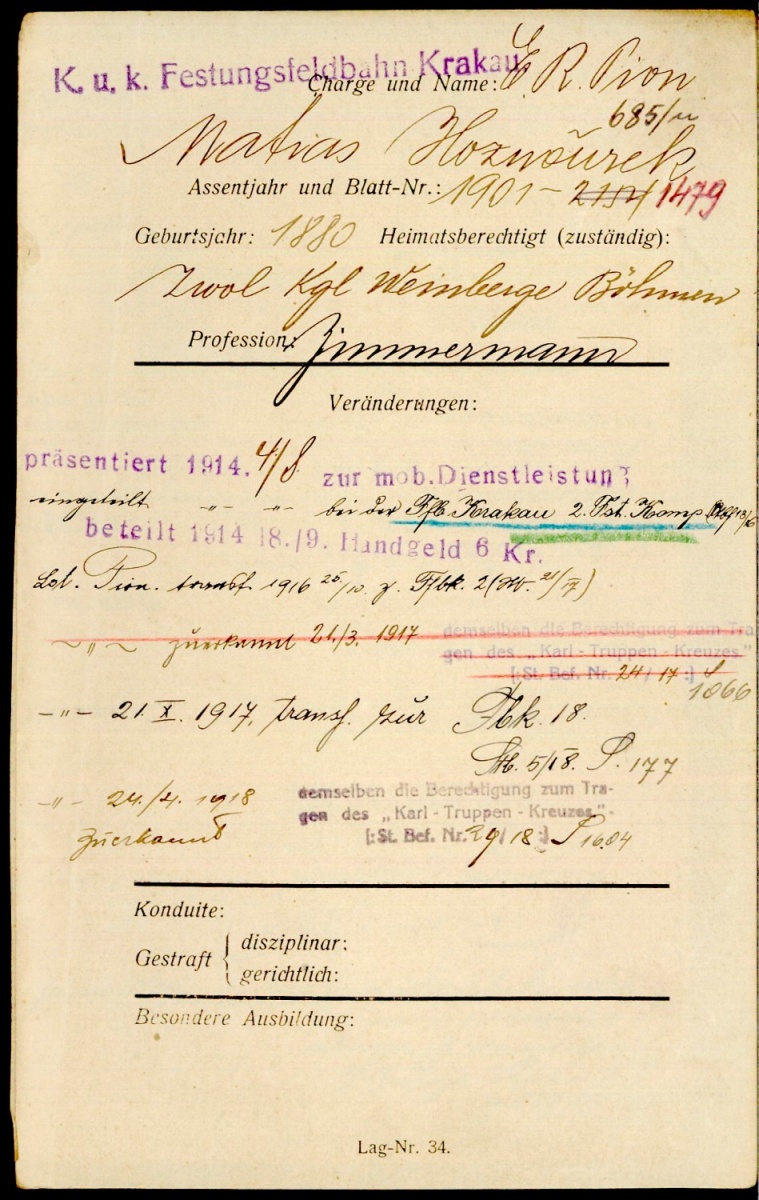 K. u. k. Festungsfeldbahn Krakau
Charge und Name: E R. Pion
685/
Matias
Assentjahr und Blatt-Nr.: 1901 - 1479
Geburtsjahr: 1880 Heimatsberechtigt (zuständig):
Zwol Kgl Weinberge Böhmen
Profession: Zimmermann
Veränderungen:
präsentiert 1914. 4/8 zur mob. Dienstleistung
eingeteilt -"- -"- bei der Ffb Krakau 2. Komp
beteilt 1914 18./9. Handgeld 6 Kr.
Pion. 1916 25/10. z. 2
~ " ~ zuerkannt 21./3. 1917 demselben die Berechtigung zum Tra
gen des „Karl-Truppen-Kreuzes."
[:St. Bef. Nr. 24/17:]
1066
-"- 21. X. 1917, transf. zur 18.
5/18. S. 177
-"- 24./4. 1918 demselben die Berechtigung zum Tra-
gen des „Karl-Truppen-Kreuzes"-
zuerkannt [:St. Bef. Nr. 29/18:] 1604
Konduite:
Gestraft { disziplinar:
gerichtlich:
Besondere Ausbildung:
Lag-Nr. 34.